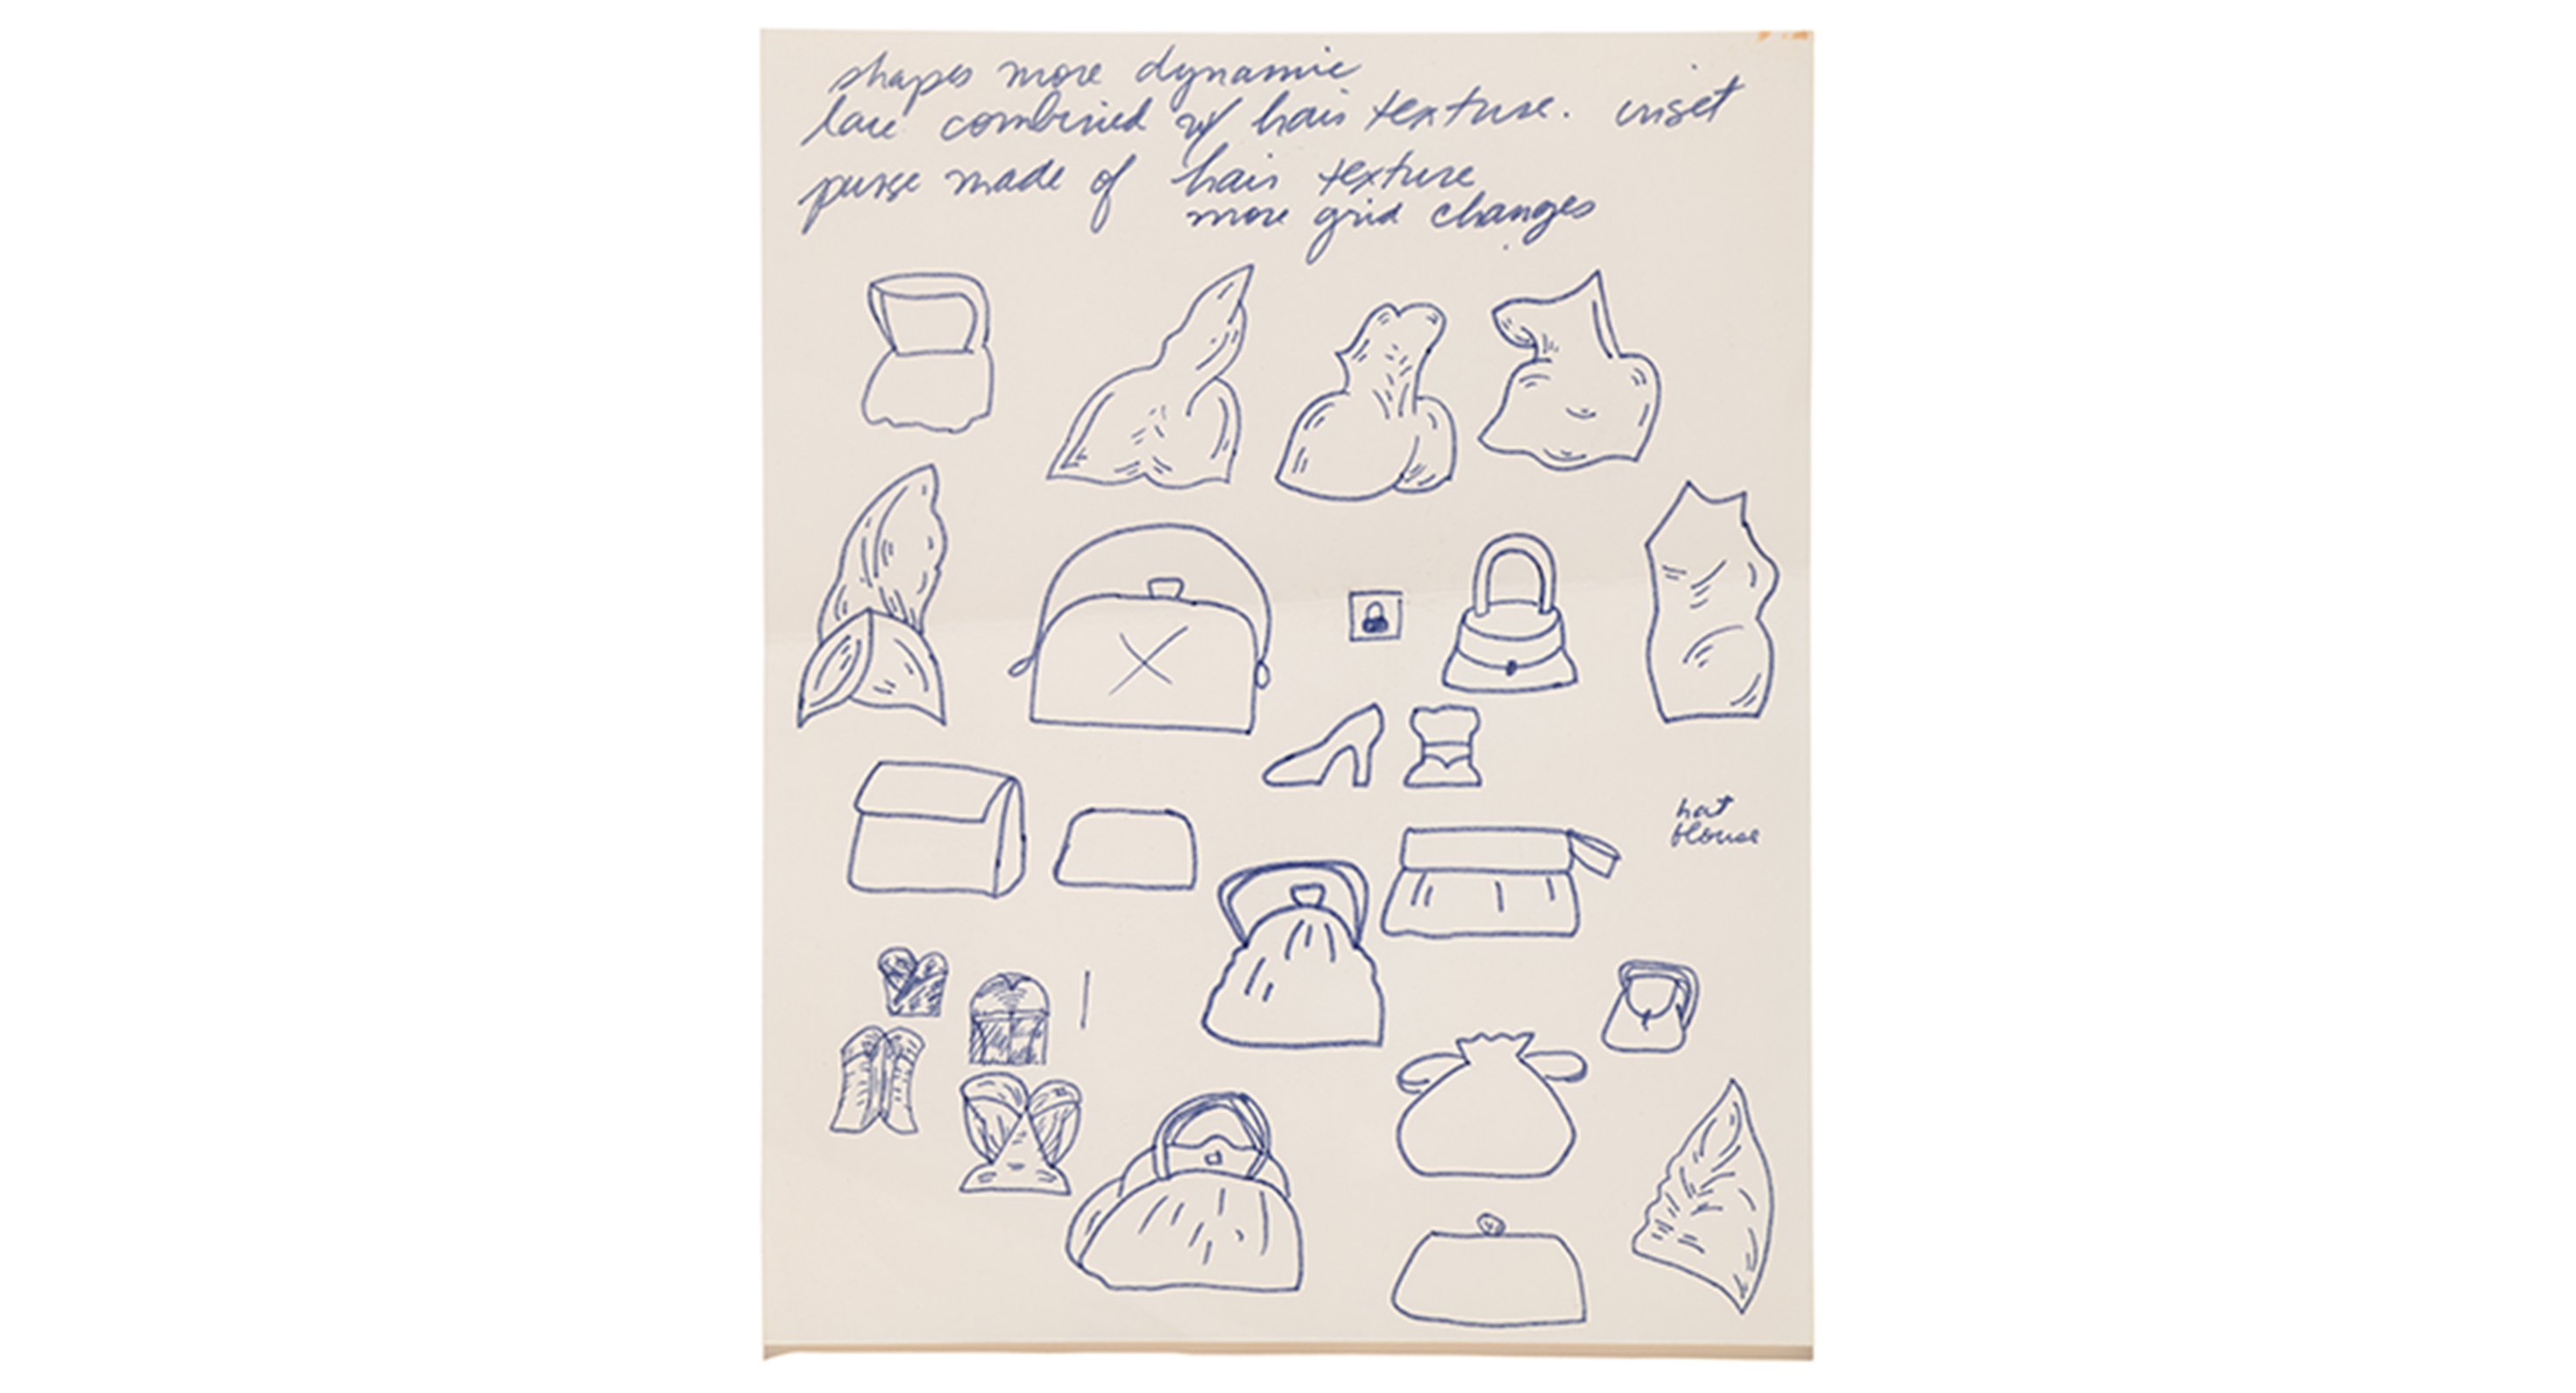 shapes more dynamic
lace combined w/ hair texture. inset
purse made of hair texture
more grid changes
hat
blouse